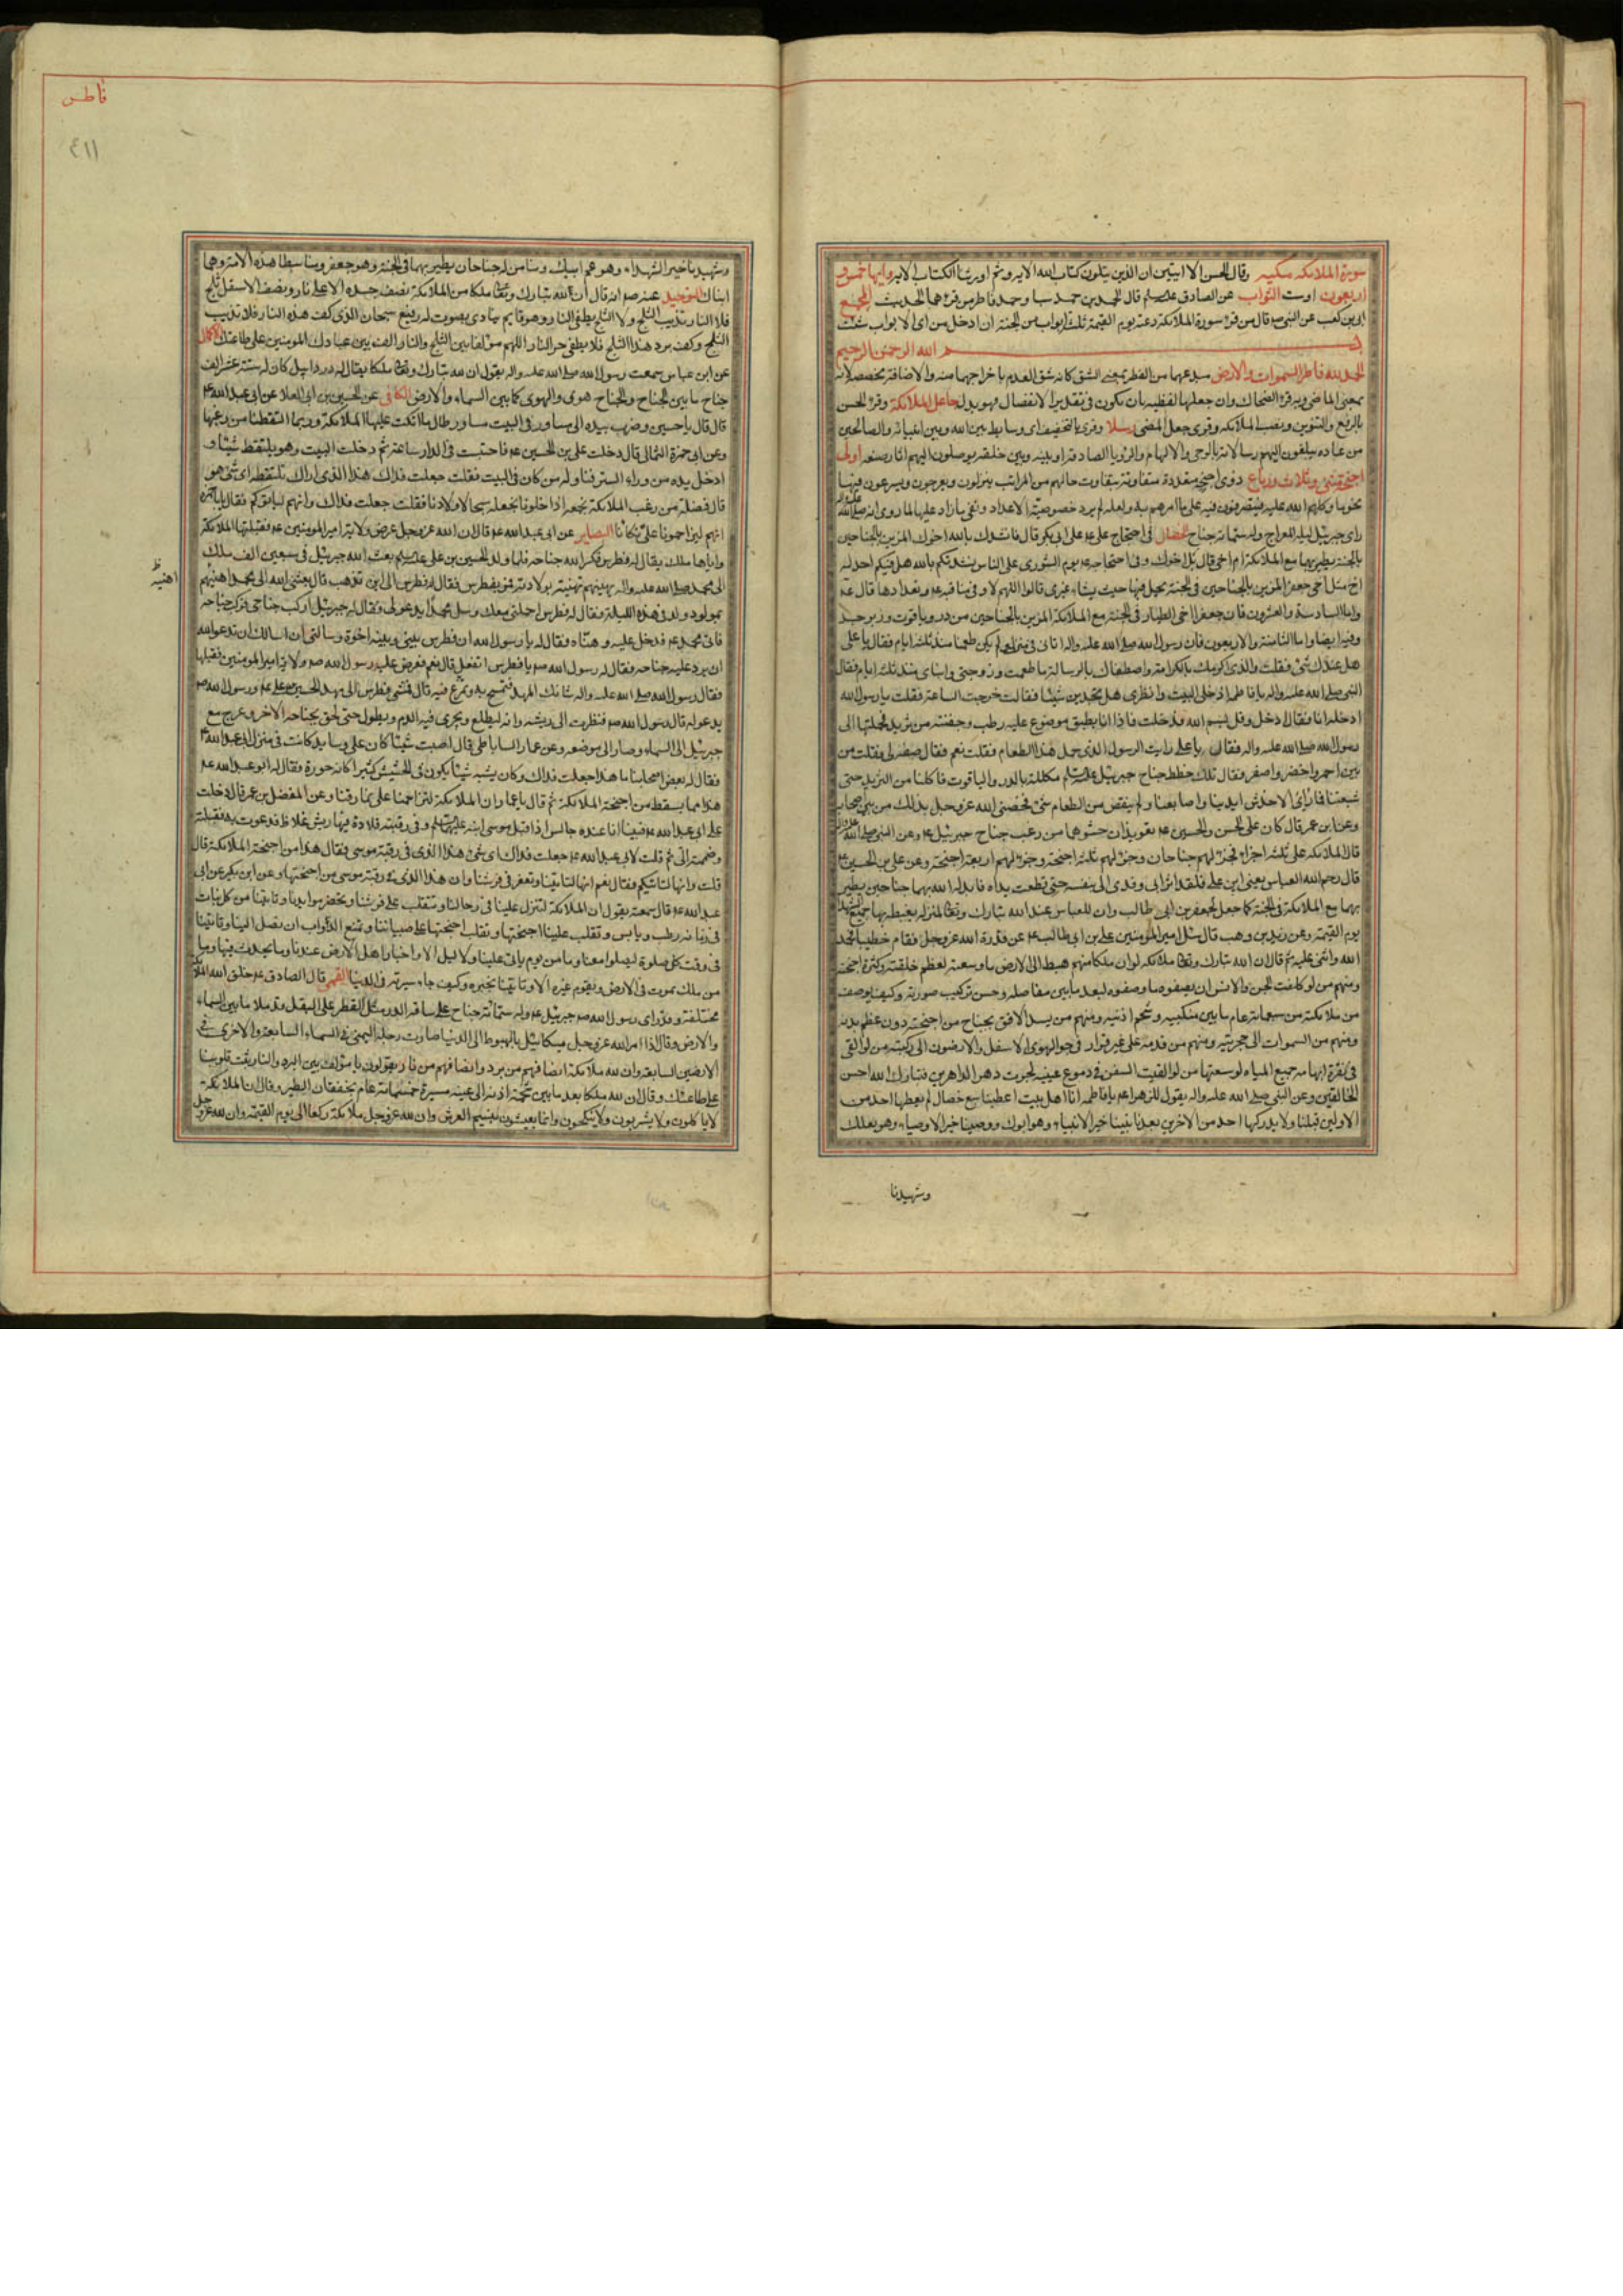 سورة الملائكة مكية وقال الحسن الا ايتين ان الذين يتلون كتاب الله الاية وثم اورثنا الكتاب الاية وايها خمس و
اربعون اوست الثواب عن الصادق عليه السلم قال الحمدين حمد سبا وحمد فاطر من قرءهما الحديث المجمع
ابي بن كعب عن النبي ص قال من قرء سورة الملائكة دعته يوم القيمة ثلثة ابواب من الجنة ان ادخل من اى الابواب شئت
بسم الله الرحمن الرحيم
الحمد لله فاطر السموات والارض مبدعهما من الفطر بمعنى الشق كانه شق العدم باخراجهما منه والاضافة محضة لانه
بمعنى الماضى وجعلها لفظية بان يكون في تقدير الانفصال فهو بدل جاعل الملائكة وقرء الحسن
بالرفع والتنوين ونصب الملائكة وقرى جعل رسلا وقرى بالتخفيف اى وسايط بين الله وبين انبيائه والصالحين
من عباده يبلغون اليهم رسالاته بالوحى والالهام والرؤيا الصادقة او بينه وبين خلقه يوصلون اليهم اثار صنعه اولى
اجنحة مثنى وثلاث ورباع ذوى اجنحة متعددة متفاوتة بتفاوت مالهم من المراتب ينزلون ويعرجون ويسرعون فيها
نحو ما وكلهم الله عليه فيتصرفون فيه على ما امرهم به ولعله لم يرد خصوصية الاعداد ونفى ما زاد عليها لما روى انه
راى جبرئيل ليلة المعراج وله ستمائة جناح في احتجاج على ع على ابى بكر قال فانشدك بالله اخوك المزين بالجناحين
بالجنة يطير بهما مع الملائكة ام اخى قال بل اخوك وفى احتجاجه ع يوم الشورى على الناس نشدتكم بالله هل فيكم احد له
اخ مثل اخى جعفر المزين بالجناحين في الجنة يحل فيها حيث يشاء غيرى قالوا اللهم لا
واما السادسة والعشرون فان جعفر اخى الطيار في الجنة مع الملائكة المزين بالجناحين من در وياقوت وزبرجد
وفيه ايضا واما الثامنة والاربعون فان رسول الله صلى الله عليه واله اتانى في منزلى ولم يكن طعمنا منذ ثلثة ايام فقال يا على
هل عندك شئ فقلت والذى اكرمك بالكرامة واصطفاك بالرسالة ما طعمت وزوجتى وابناى منذ ثلث ايام فقال
النبى صلى الله عليه واله يا فاطمة ادخلى البيت وانظرى هل تجدين شيئا فقالت خرجت الساعة فقلت يا رسول الله
ادخله انا فقال ادخل وقل بسم الله فدخلت فاذا انا بطبق موضوع عليه رطب وجفنة من ثريد فحملتها الى
رسول الله صلى الله عليه واله فقال يا على رايت الرسول الذى حمل هذا الطعام فقلت نعم فقال صفه لى فقلت من
بين احمر واخضر واصفر فقال تلك خطط جناح جبرئيل مكللة بالدر والياقوت فاكلنا من الثريد حتى
شبعنا فما راى الا خدش ايدينا واصابعنا ولم ينقص من الطعام شئ فخصنى الله عز وجل بذلك من بين
وعن ابن عمر قال كان على الحسن والحسين ع تعويذان حشوهما من زغب جناح جبرئيل ع وعن النبي
قال الملائكة على ثلثة اجزاء فجزء لهم جناحان وجزء لهم ثلثة اجنحة وجزء لهم اربعة اجنحة وعن على بن الحسين ع
قال رحم الله العباس يعنى ابن على فلقد اثر وابلى وفدى الى بنفسه حتى قطعت يداه فابدله الله بهما جناحين يطير
بهما مع الملائكة في الجنة كما جعل لجعفر بن ابى طالب وان للعباس عند الله تبارك وتعالى لمنزلة يغبطه بها جميع الشهداء
يوم القيمة وعن زيد بن وهب قال سئل امير المؤمنين على بن ابى طالب ع عن قدرة الله عز وجل فقام خطيبا فحمد
الله واثنى عليه ثم قال ان الله تبارك وتعالى ملائكة لو ان ملكا منهم هبط الى الارض ما وسعته لعظم خلقته وكثرة اجنحته
ومنهم من لو كلفت الجن والانس ان يصفوه ما وصفوه لبعد ما بين مفاصله وحسن تركيب صورته وكيف يوصف
من ملائكته من سبعمائة عام ما بين منكبيه وشحم اذنيه ومنهم من يسد الافق بجناح من اجنحته دون عظم بدنه
ومنهم من السموات الى حجزته ومنهم من قدمه على غير قرار في جو الهوى الاسفل والارضون الى ركبته من لو القى
في نقرة ابهامه جميع المياه لوسعتها من لو القيت السفن في دموع عينيه لجرت دهر الداهرين فتبارك الله احسن
الخالقين وعن النبي صلى الله عليه واله يقول للزهراء ع يا فاطمة انا اهل بيت اعطينا سبع خصال لم يعطها احد من
الاولين قبلنا ولا يدركها احد من الاخرين بعدنا نبينا خير الانبياء وهو ابوك ووصينا خير الاوصياء وهو بعلك
وشهيدنا
فاطر
٤١١
وشهيدنا خير الشهداء وهو عم ابيك ومنا من له جناحان يطير بهما في الجنة وهو جعفر ومنا سبطا هذه الامة وهما
ابناك التوحيد عنه ص انه قال ان لله تبارك وتعالى ملكا من الملائكة نصف جسده الاعلى نار ونصف الاسفل ثلج
فلا النار تذيب الثلج ولا الثلج يطفى النار وهو قايم ينادى بصوت له رفيع سبحان الذى كف هذه النار فلا تذيب
الثلج وكف برد هذا الثلج فلا يطفى حر النار اللهم مؤلفا بين الثلج والنار الف بين عبادك المؤمنين على طاعتك الاكمال
عن ابن عباس سمعت رسول الله صلى الله عليه واله يقول ان لله تبارك وتعالى ملكا يقال له دردائيل كان له ستة عشر الف
جناح ما بين الجناح والجناح هوى والهوى كما بين السماء والارض الكافى عن الحسين بن ابى العلا عن ابى عبد الله ع
قال قال يا حسين وضرب بيده الى مساور في البيت مساور طال ما اتكت عليها الملائكة وربما التقطنا من زغبها
وعن ابى حمزة الثمالى قال دخلت على على بن الحسين ع فاحتبست في الدار ساعة ثم دخلت البيت وهو يلتقط شيئا و
ادخل يده من وراء الستر فناوله من كان في البيت فقلت جعلت فداك هذا الذى اراك تلتقطه اى شئ هو
قال فضلة من زغب الملائكة نجمعه اذا خلونا نجعله سبحا لاولادنا فقلت جعلت فداك وانهم لياتونكم فقال يا با حمزة
انهم ليزاحمونا على تكاتنا البصاير عن ابى عبد الله ع قال ان الله عز وجل عرض ولاية امير المؤمنين ع فقبلتها الملائكة
واباها ملك يقال له فطرس فكسر الله جناحه فلما ولد الحسين بن على ع بعث الله جبرئيل في سبعين الف ملك
الى محمد صلى الله عليه واله يهنيهم بولادته فمر بفطرس فقال له فطرس الى اين تذهب قال بعثنى الله الى محمد اهنيهم
اهنيه ظ
بمولود ولد في هذه الليلة فقال له فطرس احملنى معك وسل محمدا يدعو لى فقال له جبرئيل اركب جناحى فركب جناحه
فاتى محمد ع فدخل عليه وهناه فقال له يا رسول الله ان فطرس بينى وبينه اخوة وسالنى ان اسالك ان تدعو الله
ان يرد عليه جناحه فقال له رسول الله ص يا فطرس اتفعل قال نعم فعرض عليه رسول الله ص ولاية امير المؤمنين فقبلها
فقال رسول الله صلى الله عليه واله شانك المهد فتمسح به وتمرغ فيه قال فمشى فطرس الى مهد الحسين بن على ع ورسول الله ص
يدعو له قال رسول الله ص فنظرت الى ريشه وانه ليطلع ويجرى فيه الدم ويطول حتى لحق بجناحه الاخر وعرج مع
جبرئيل الى السماء وصار الى موضعه وعن عمار الساباطى قال اصبت شيئا كان على وسايد كانت في منزل ابى عبد الله ع
فقال له بعض اصحابنا ما هذا جعلت فداك وكان يشبه شيئا يكون في الحشيش كثيرا كانه خرزة فقال له ابو عبد الله ع
هذا مما يسقط من اجنحة الملائكة ثم قال يا عمار ان الملائكة لتزاحمنا على نمارقنا وعن المفضل بن عمر قال دخلت
على ابى عبد الله ع فبينا انا عنده جالس اذ اقبل موسى ابنه وفى رقبته قلادة فيها ريش غلاظ فدعوت به فقبلته
وضممته الى ثم قلت لابى عبد الله ع جعلت فداك اى شئ هذا الذى في رقبة موسى فقال هذا من اجنحة الملائكة قال
قلت وانها لتاتيكم فقال نعم انها لتاتينا وتعفر في فرشنا وان هذا الذى في رقبة موسى من اجنحتها وعن ابن بكير عن ابى
عبد الله ع قال سمعته يقول ان الملائكة لتنزل علينا في رحالنا وتتقلب على فرشنا وتحضر موايدنا وتاتينا من كل نبات
في زمانه رطب ويابس وتقلب علينا اجنحتها وتقلب اجنحتها على صبياننا وتمنع الدواب ان تصل الينا وتاتينا
في وقت كل صلوة ليصلوا معنا وما من يوم ياتى علينا ولا ليل الا واخبار اهل الارض عندنا وما يحدث فيها وما
من ملك يموت في الارض ويقوم غيره الا وتاتينا بخبره وكيف كان سيرته في الدنيا القمى قال الصادق ع خلق الله الملائكة
مختلفة وقد راى رسول الله ص جبرئيل ع وله ستمائة جناح على ساقه الدر مثل القطر على البقل وقد ملا ما بين السماء
والارض وقال اذا امر الله عز وجل ميكائيل بالهبوط الى الدنيا صارت رجله اليمنى في السماء السابعة والاخرى في
الارضين السابعة وان لله ملائكة انصافهم من برد وانصافهم من نار يقولون يا مؤلف بين البرد والنار ثبت قلوبنا
على طاعتك وقال ان لله ملكا بعد ما بين شحمة اذنه الى عينه مسيرة خمسمائة عام بخفقان الطير وقال ان الملائكة
لا ياكلون ولا يشربون ولا ينكحون وانما يعيشون بنسيم العرش وان لله عز وجل ملائكة ركعا الى يوم القيمة وان لله عز وجل